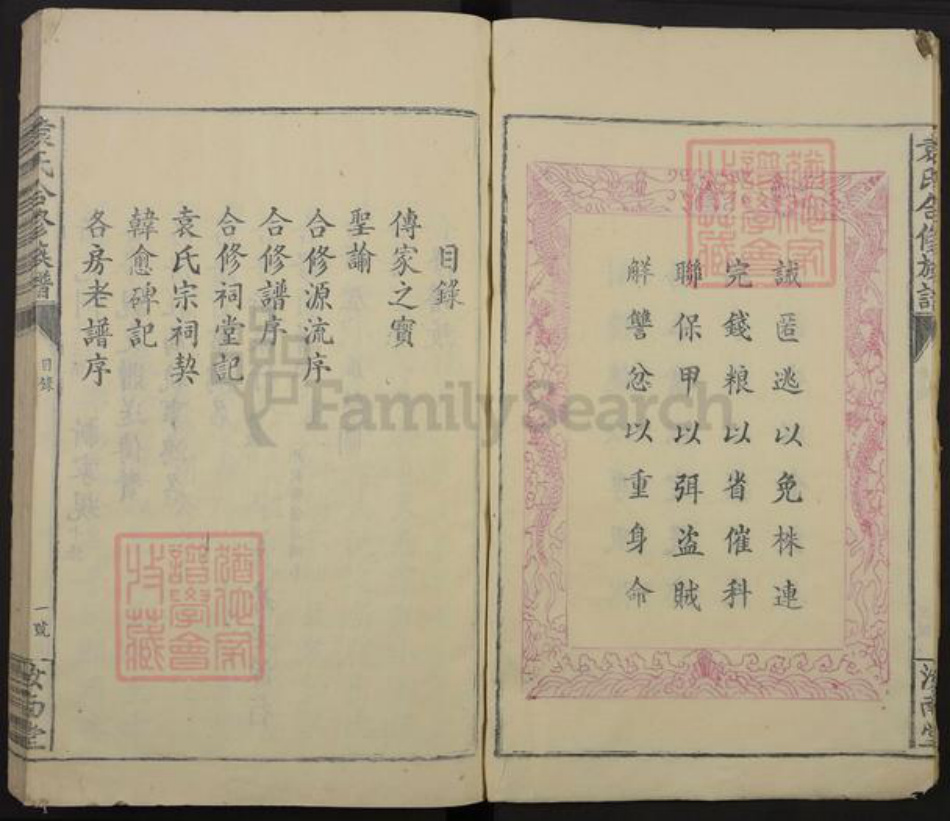 誡匿逃以免株連
完錢粮以省催科
聯保甲以弭盜賊
解讐忿以重身命
袁氏合修族譜
汝南堂
目錄
傳家之寶
聖諭
合修源流序
合修譜序
合修祠堂記
袁氏宗祠契
韓愈碑記
各房老譜序
袁氏合修族譜
目錄
一號
汝南堂
FamilySearch